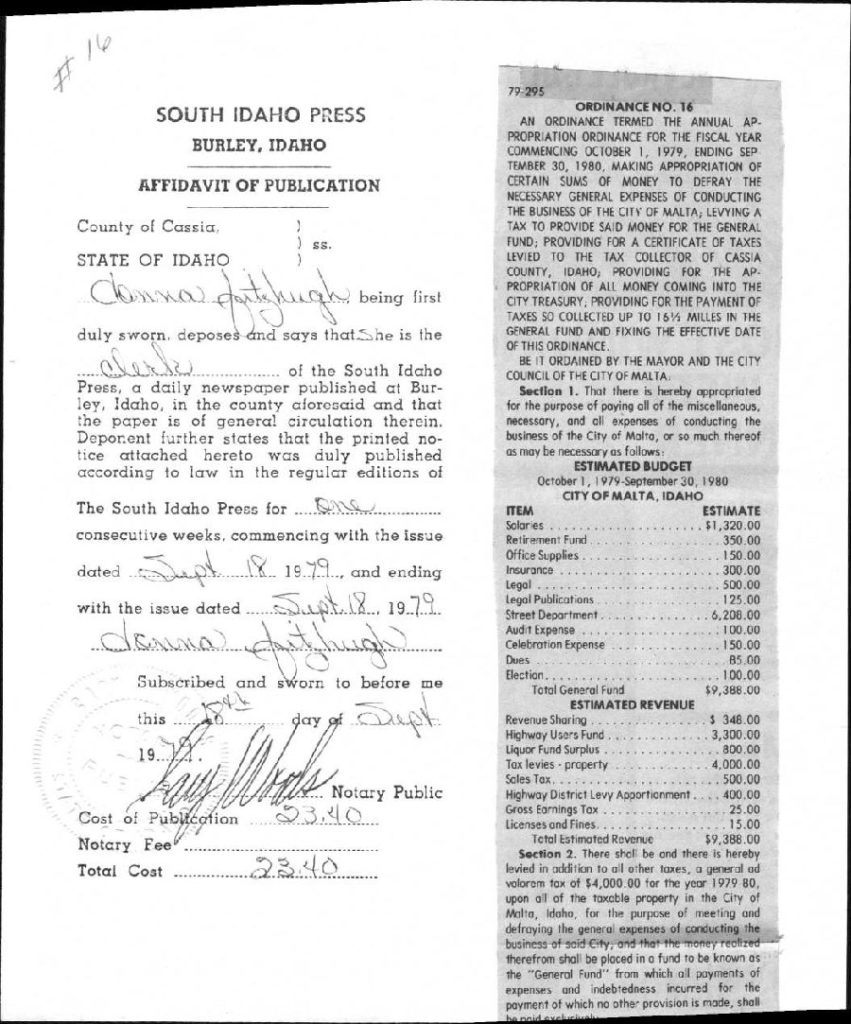 # 16
SOUTH IDAHO PRESS
BURLEY, IDAHO
AFFIDAVIT OF PUBLICATION
County of Cassia, )
) ss.
STATE OF IDAHO )
Donna Fitzhugh being first
duly sworn, deposes and says that She is the
clerk of the South Idaho
Press, a daily newspaper published at Bur-
ley, Idaho, in the county aforesaid and that
the paper is of general circulation therein.
Deponent further states that the printed no-
tice attached hereto was duly published
according to law in the regular editions of
The South Idaho Press for one
consecutive weeks, commencing with the issue
dated Sept 18 1979, and ending
with the issue dated Sept. 18, 1979
Donna Fitzhugh
Subscribed and sworn to before me
this 18th day of Sept
1979.
Notary Public
Cost of Publication 23.40
Notary Fee
Total Cost 23.40
79-295
ORDINANCE NO. 16
AN ORDINANCE TERMED THE ANNUAL AP-
PROPRIATION ORDINANCE FOR THE FISCAL YEAR
COMMENCING OCTOBER 1, 1979, ENDING SEP-
TEMBER 30, 1980, MAKING APPROPRIATION OF
CERTAIN SUMS OF MONEY TO DEFRAY THE
NECESSARY GENERAL EXPENSES OF CONDUCTING
THE BUSINESS OF THE CITY OF MALTA; LEVYING A
TAX TO PROVIDE SAID MONEY FOR THE GENERAL
FUND; PROVIDING FOR A CERTIFICATE OF TAXES
LEVIED TO THE TAX COLLECTOR OF CASSIA
COUNTY, IDAHO; PROVIDING FOR THE AP-
PROPRIATION OF ALL MONEY COMING INTO THE
CITY TREASURY; PROVIDING FOR THE PAYMENT OF
TAXES SO COLLECTED UP TO 16½ MILLES IN THE
GENERAL FUND AND FIXING THE EFFECTIVE DATE
OF THIS ORDINANCE.
BE IT ORDAINED BY THE MAYOR AND THE CITY
COUNCIL OF THE CITY OF MALTA:
Section 1. That there is hereby appropriated
for the purpose of paying all of the miscellaneous,
necessary, and all expenses of conducting the
business of the City of Malta, or so much thereof
as may be necessary as follows:
ESTIMATED BUDGET
October 1, 1979-September 30, 1980
CITY OF MALTA, IDAHO
ITEM ESTIMATE
Salaries $1,320.00
Retirement Fund 350.00
Office Supplies 150.00
Insurance 300.00
Legal 500.00
Legal Publications 125.00
Street Department 6,208.00
Audit Expense 100.00
Celebration Expense 150.00
Dues 85.00
Election 100.00
Total General Fund $9,388.00
ESTIMATED REVENUE
Revenue Sharing $ 348.00
Highway Users Fund 3,300.00
Liquor Fund Surplus 800.00
Tax levies - property 4,000.00
Sales Tax 500.00
Highway District Levy Apportionment 400.00
Gross Earnings Tax 25.00
Licenses and Fines 15.00
Total Estimated Revenue $9,388.00
Section 2. There shall be and there is hereby
levied in addition to all other taxes, a general ad
valorem tax of $4,000.00 for the year 1979 80,
upon all of the taxable property in the City of
Malta, Idaho, for the purpose of meeting and
defraying the general expenses of conducting the
business of said City; and that the money realized
therefrom shall be placed in a fund to be known as
the "General Fund" from which all payments of
expenses and indebtedness incurred for the
payment of which no other provision is made, shall
be paid exclusively